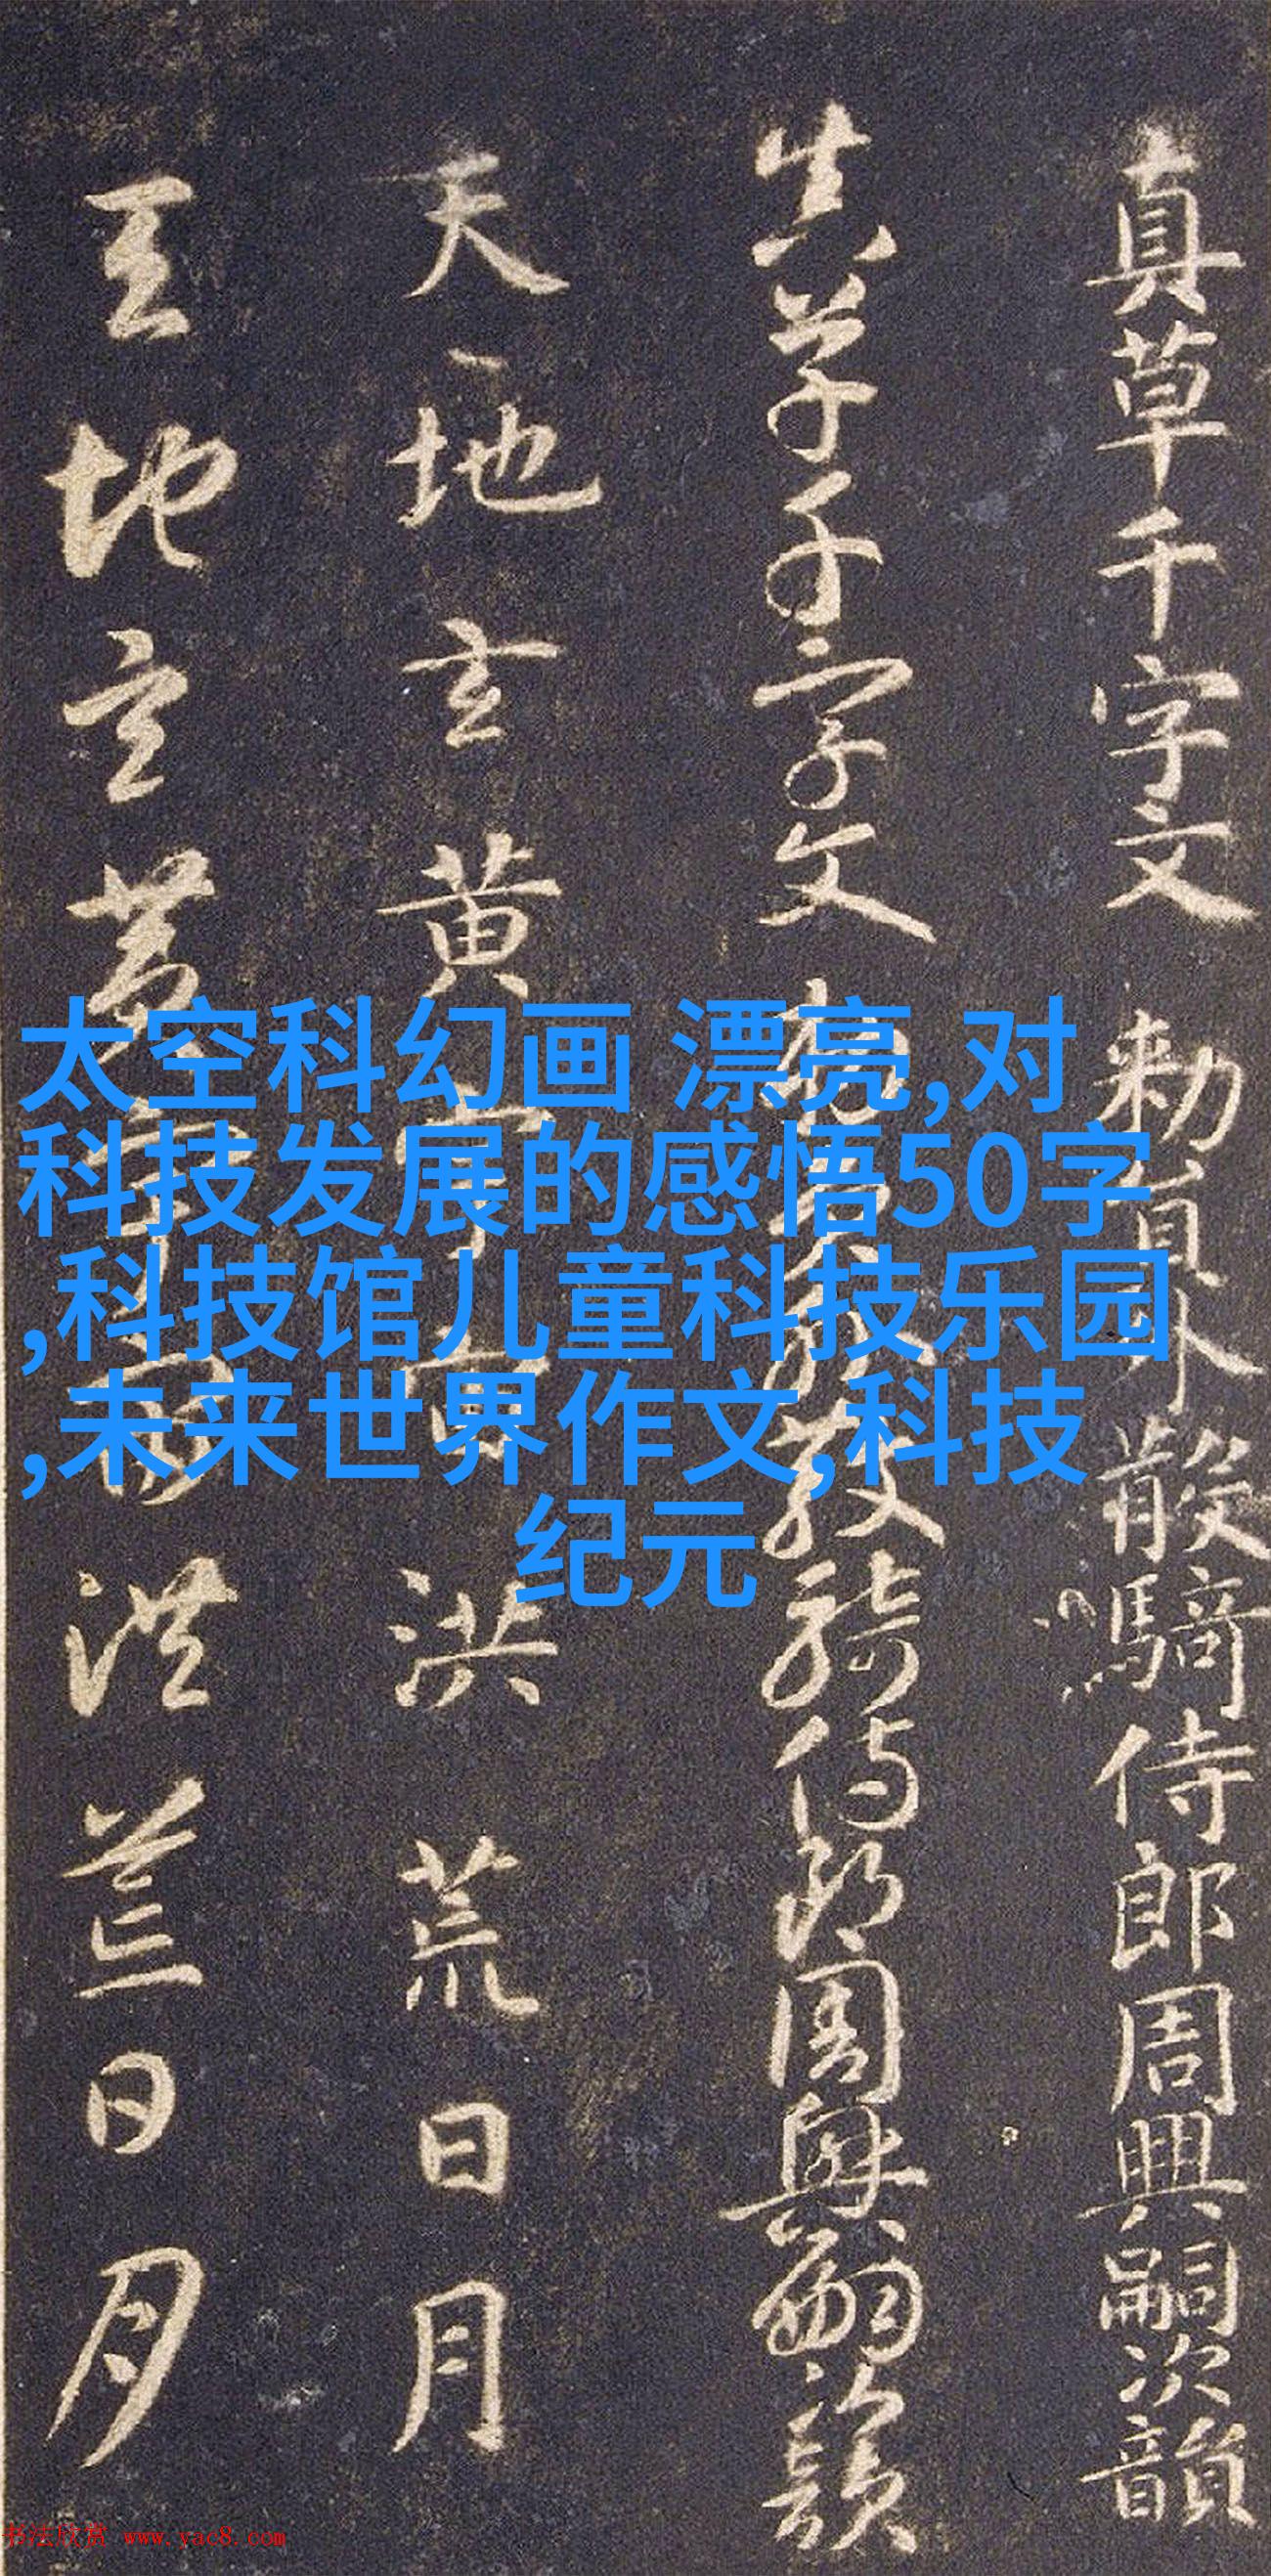 真草千字文 勑貟外散騎侍郎周興嗣次韻
真草千字文 勑員外散騎侍郎周興嗣次韻
天地玄黄宇宙洪荒日月
天地玄黄宇宙洪荒日月
太空科幻画 漂亮,对
科技发展的感悟50字
,科技馆儿童科技乐园
,未来世界作文,科技
纪元
书法欣赏 www.yac8.com